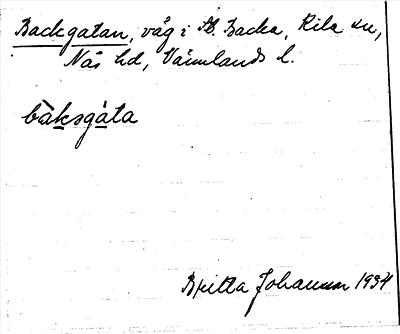 Backgatan, väg i St. Backa, Kila sn,
Näs hd, Värmlands l.
bàksgàta
Britta Johansson 1934